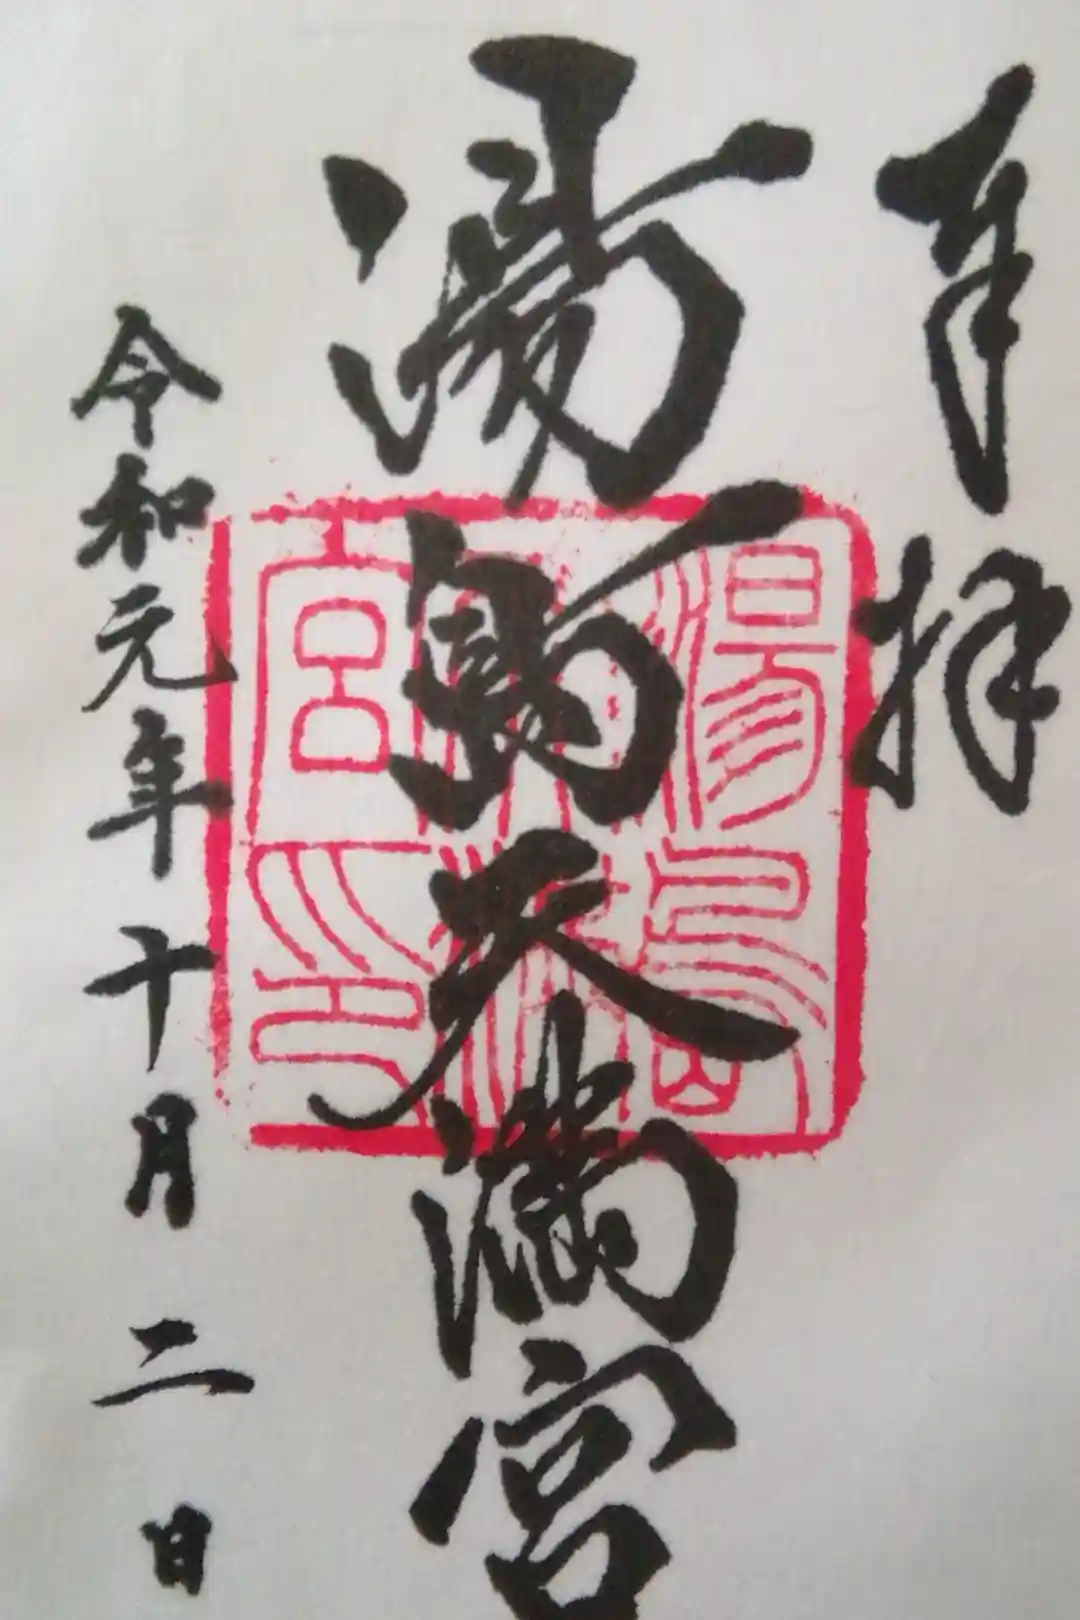 奉拝
湯島天満宮
湯島天神宮印
令和元年十月二日